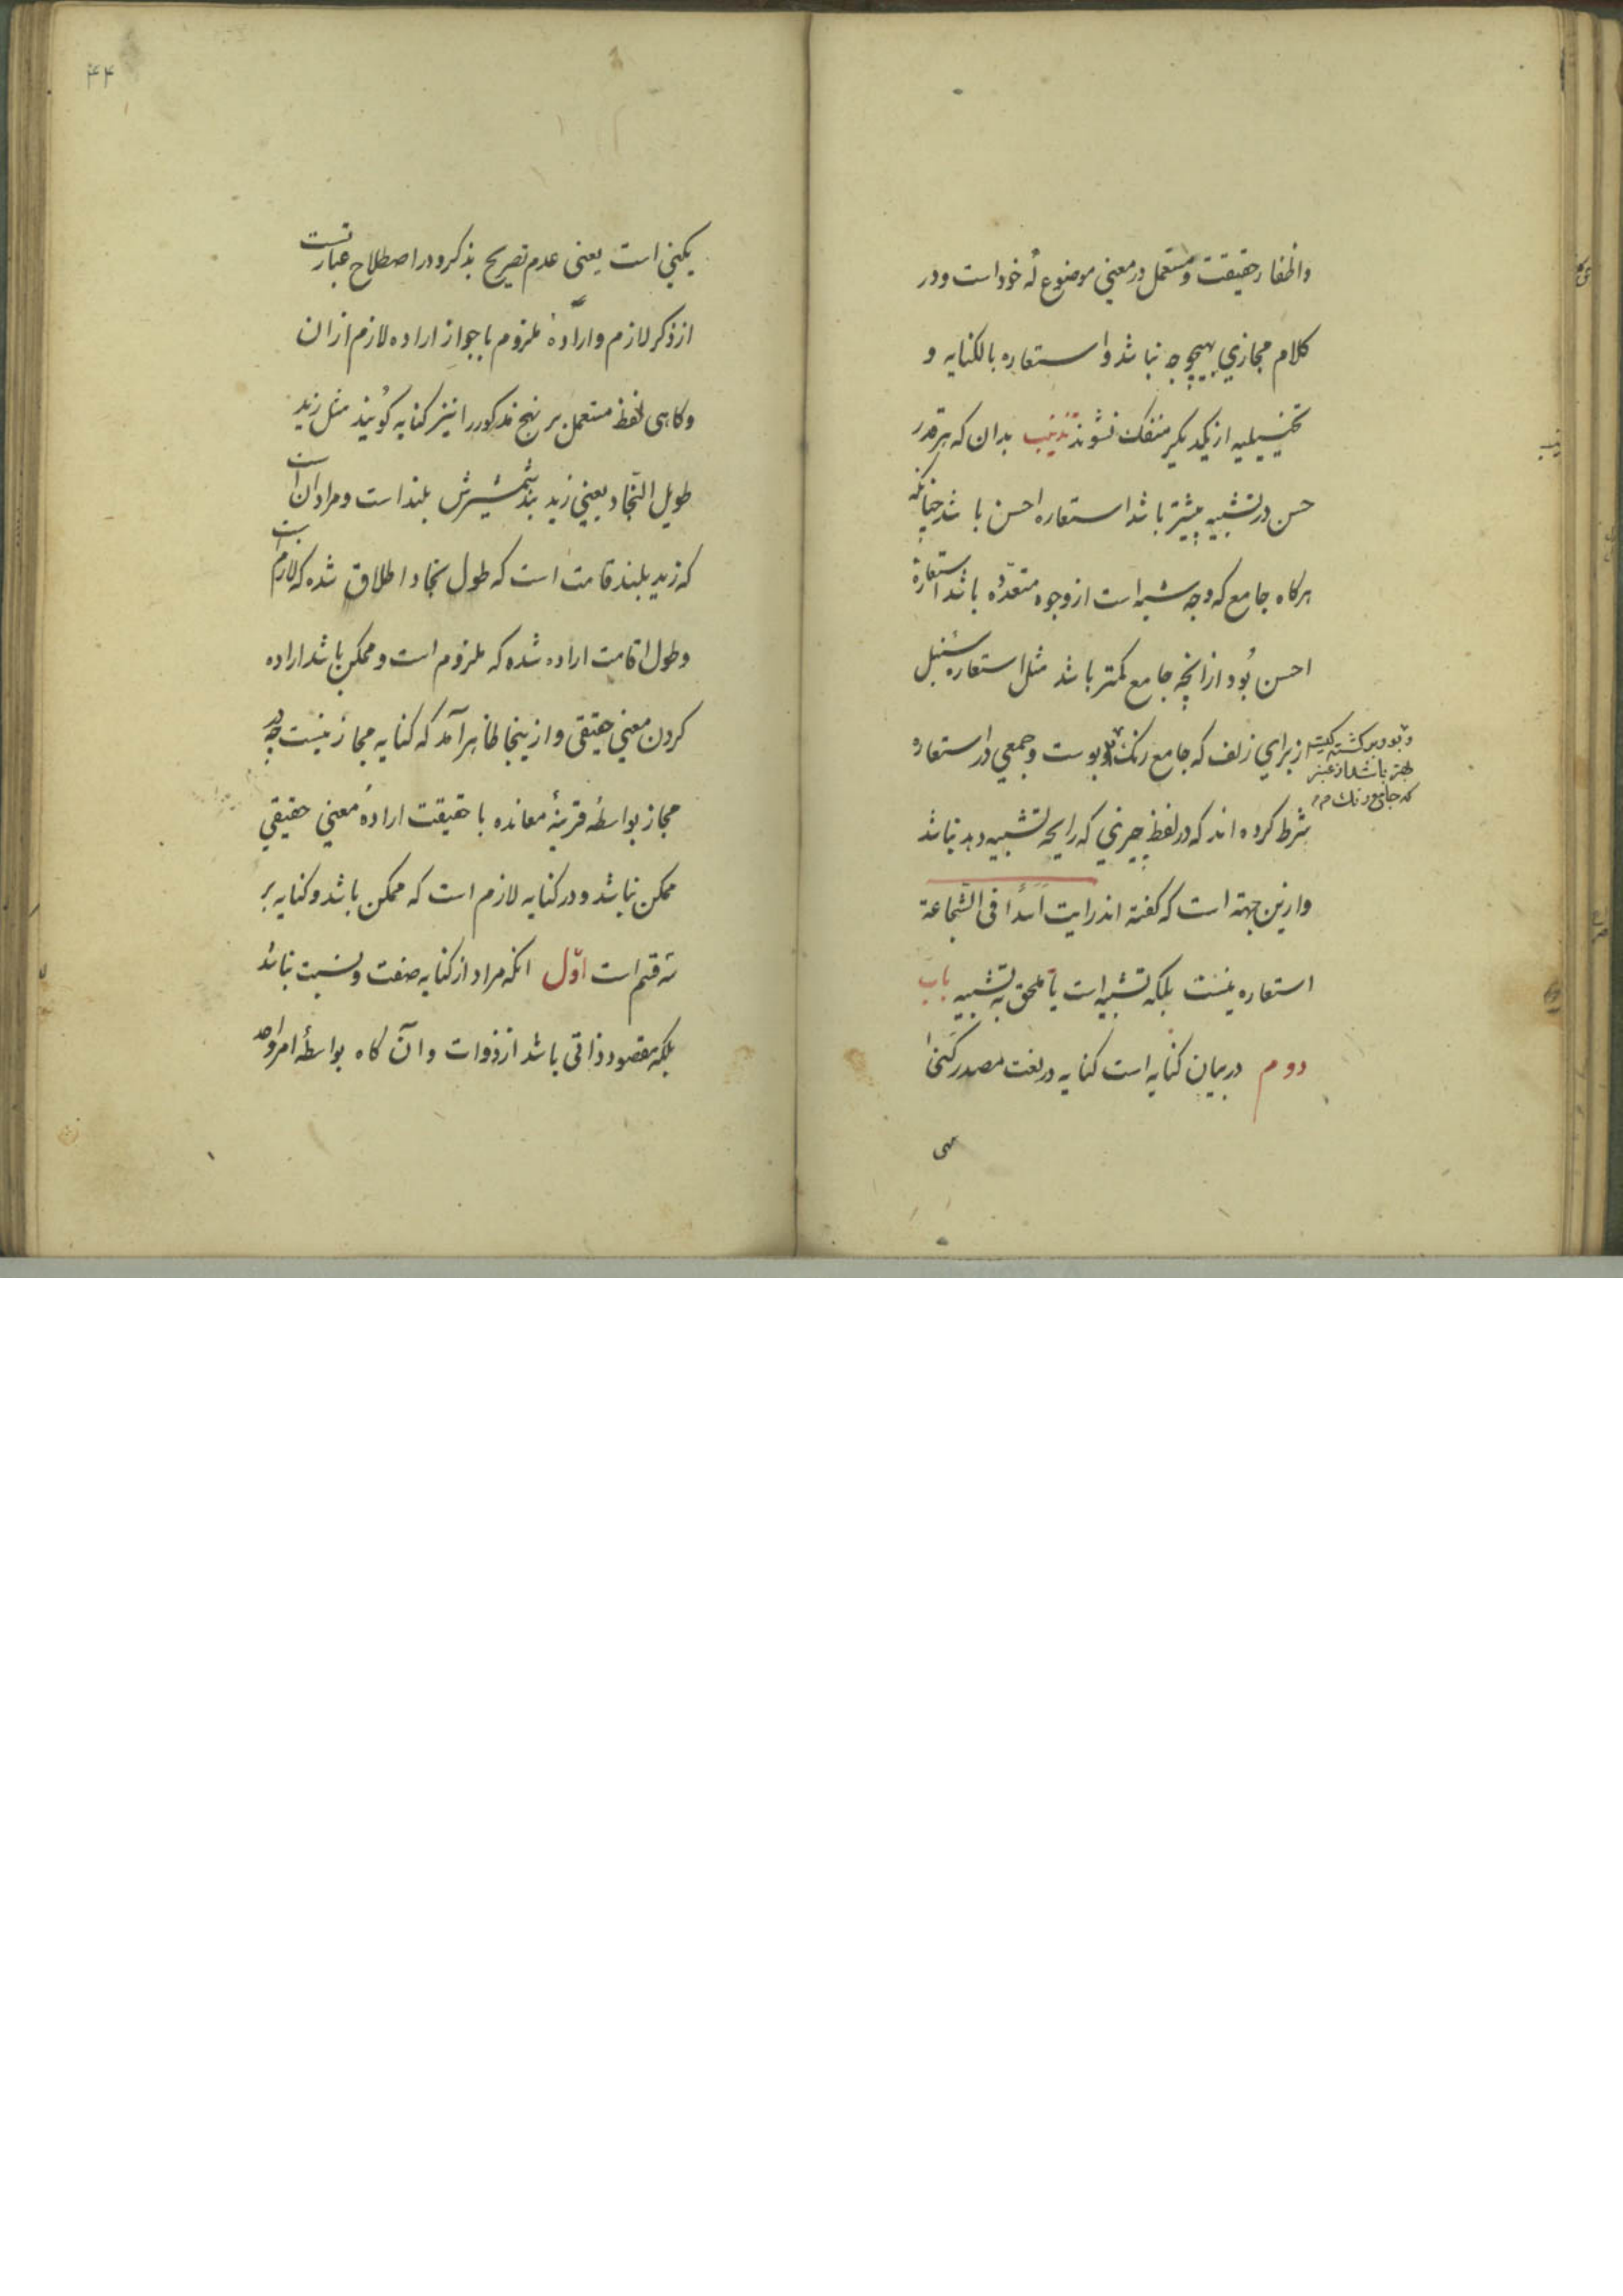 واظفار حقیقت و مستعمل در معنی موضوع له خود است و در
کلام مجازی بهیچوجه نباشد و استعاره بالکنایه و
تخییلیه از یکدیگر منفک نشوند تذنیب بدان که هر قدر
حسن در تشبیه بیشتر باشد استعاره احسن باشد چنانکه
هرکاه جامع که وجه شبه است از وجوه متعدده باشد استعاره
احسن بود از انچه جامع کمتر باشد مثل استعاره سنبل
از برای زلف که جامع رنک و بوست و جمعی در استعاره
شرط کرده اند که در لفظ چیزی که رایحه تشبیه دهد نباشد
و ازین جهته است که کفته اند رایت اسدا فی الشجاعة
استعاره نیست بلکه تشبیه است یا ملحق به تشبیه باب
دوم در بیان کنایه است کنایه در لغت مصدر کنی
بهتر باشد از عنبر
که جامع رنک
۴۴
یکنی است یعنی عدم تصریح بذکر و در اصطلاح عبارتست
از ذکر لازم و ارادهٔ ملزوم با جواز اراده لازم از ان
و کاهی لفظ مستعمل بر نهج مذکور را نیز کنایه کویند مثل زید
طویل النجاد یعنی زید بند شمشیرش بلند است و مراد ان است
که زید بلند قامت است که طول نجاد اطلاق شده که لازم است
و طول قامت اراده شده که ملزوم است و ممکن باشد اراده
کردن معنی حقیقی و ازینجا ظاهر آمد که کنایه مجاز نیست چه در
مجاز بواسطهٔ قرینهٔ معانده با حقیقت ارادهٔ معنی حقیقی
ممکن نباشد و در کنایه لازم است که ممکن باشد و کنایه بر
سه قسم است اوّل انکه مراد از کنایه صفت و نسبت نباشد
بلکه مقصود ذاتی باشد از ذوات و آن کاه بواسطهٔ امر واحد